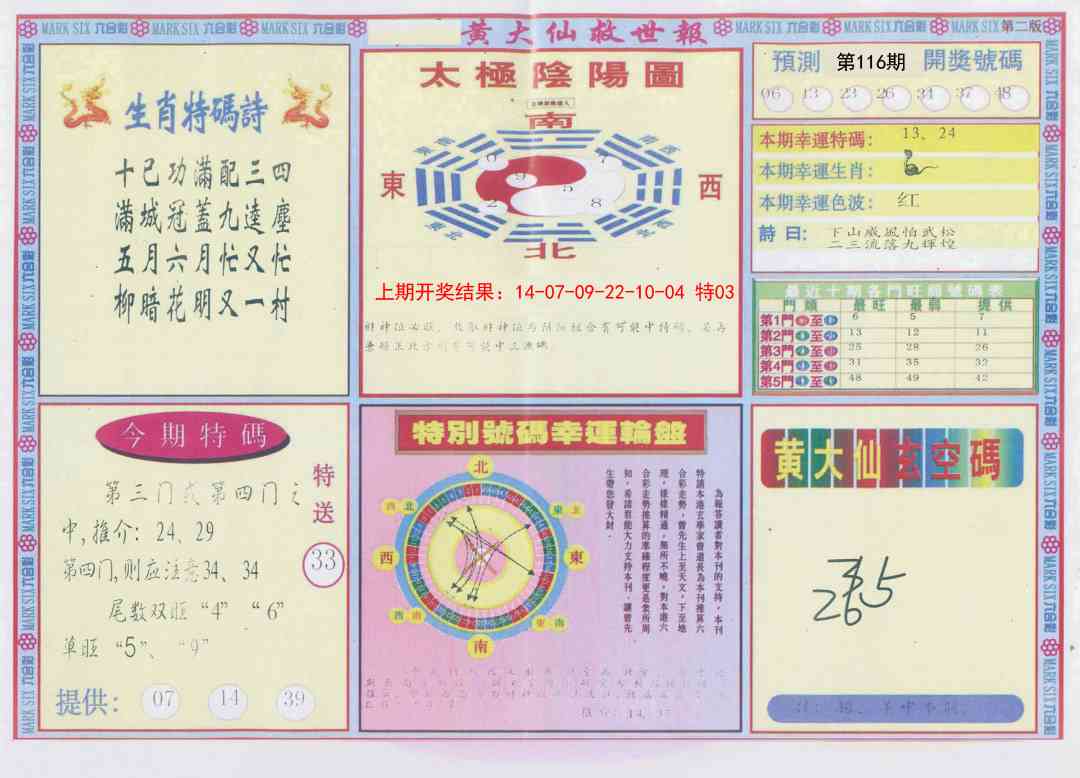 MARK SIX 六合彩 MARK SIX 六合彩 MARK SIX 六合彩
黃大仙救世報
MARK SIX 六合彩 MARK SIX 六合彩 MARK SIX 第二版
生肖特碼詩
十已功滿配三四
滿城冠蓋九逵塵
五月六月忙又忙
柳暗花明又一村
太極陰陽圖
南
東南
西南
東
西
9
7
5
2
8
東北
西北
北
上期开奖结果：14-07-09-22-10-04 特03
預測 第116期 開獎號碼
06 13 23 26 34 37 48
本期幸運特碼： 13、24
本期幸運生肖：
本期幸運色波： 红
詩曰： 下山威風怕武松
二三流落九輝煌
門類 最旺 最弱 提供
第1門 至 6 5 7
第2門 至 13 12 11
第3門 至 25 28 26
第4門 至 31 35 32
第5門 至 48 49 42
今期特碼
第三门或第四门之
中,推介：24、29
第四门,则应注意34、34
尾数双旺“4”“6”
单旺“5”、“9”
特送
33
提供： 07 14 39
特別號碼幸運輪盤
北
西北
東北
西
東
西南
東南
南
為報答讀者對本刊的支持，本刊
特請本港玄學家曾道長為本刊推算六
合彩走勢，曾先生上至天文，下至地
理，樣樣精通，無所不曉，對本港六
合彩走勢推算的準確程度更是衆所周
知，希請有能大力支持本刊，讓曾先
生帶您發大財．
推介：14、37
黃大仙玄空碼
265